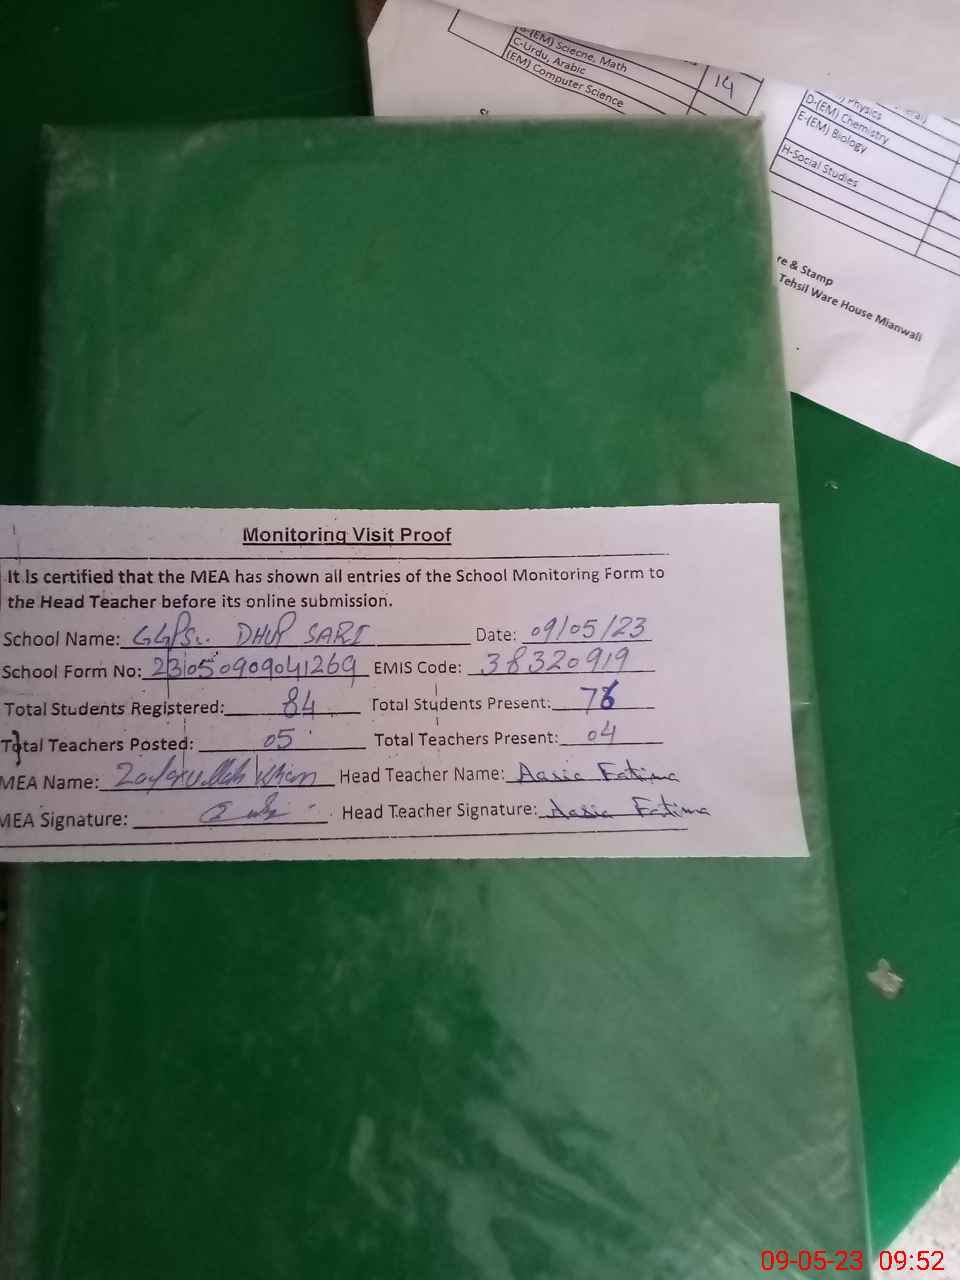 G-(EM) Sciecne, Math
C-Urdu, Arabic
(EM) Computer Science
14
Physics
D-(EM) Chemistry
E-(EM) Biology
H-Social Studies
re & Stamp
Tehsil Ware House Mianwali
Monitoring Visit Proof
It Is certified that the MEA has shown all entries of the School Monitoring Form to
the Head Teacher before its online submission.
School Name: GGPS.. DHUP SARI Date: 09/05/23
School Form No: 23050909041269 EMIS Code: 38320919
Total Students Registered: 84 Total Students Present: 76
Total Teachers Posted: 05 Total Teachers Present: 04
MEA Name: Zafarullah Khan Head Teacher Name: Aasia Fatima
MEA Signature: Head Teacher Signature: Aasia Fatima
09-05-23 09:52